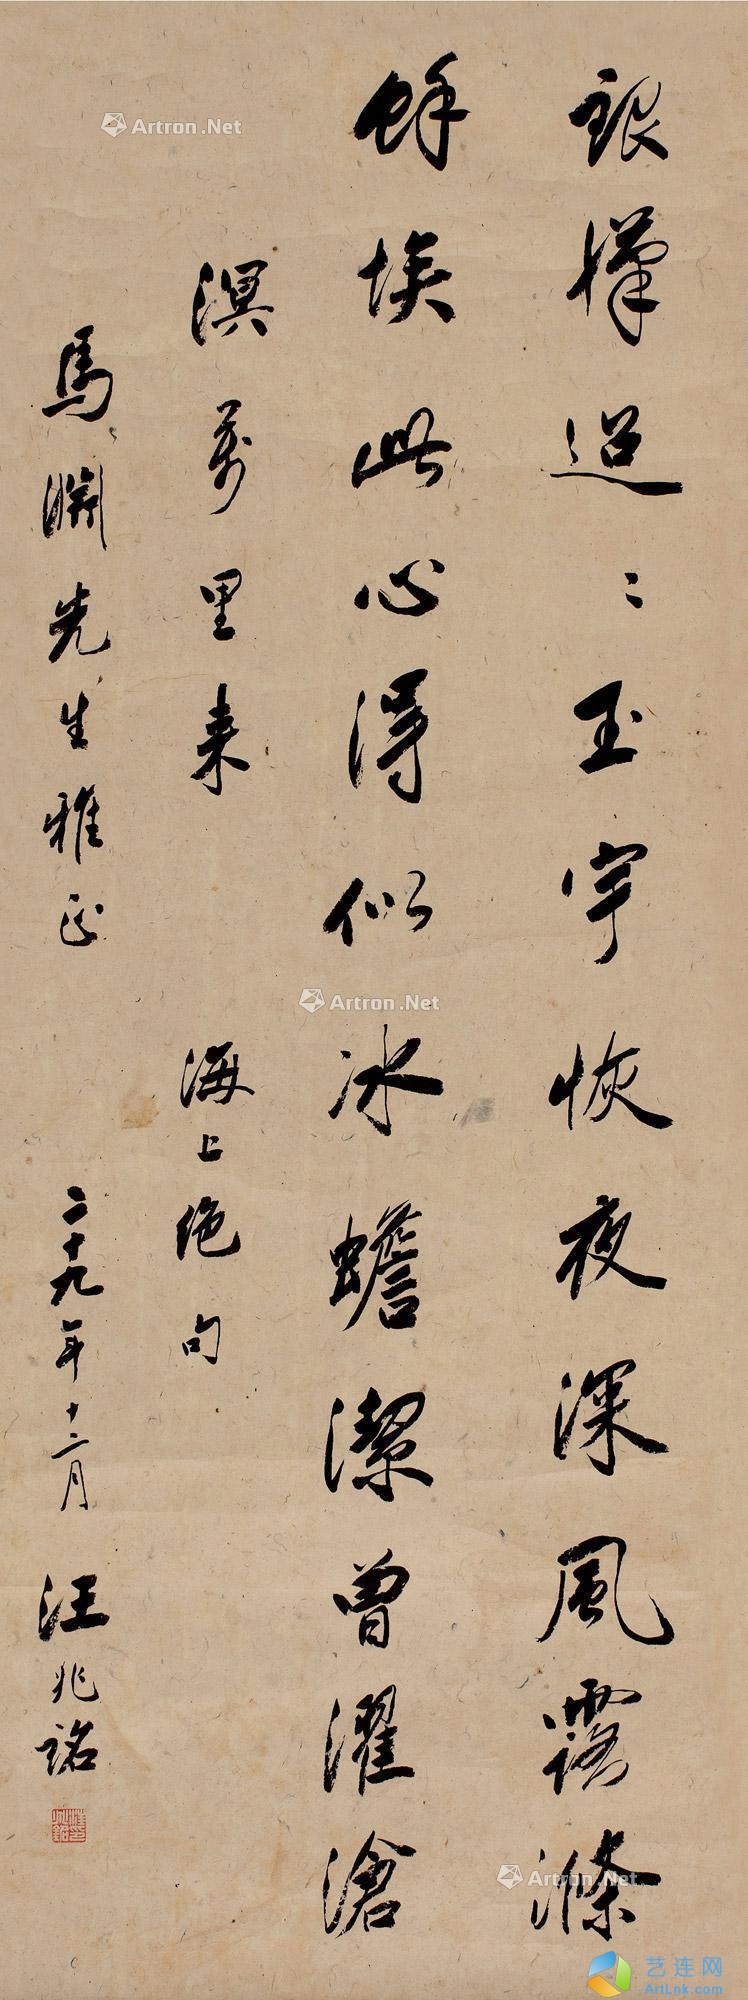 銀漢迢〻玉宇恢夜深風露滌
餘埃此心得似冰蟾潔曾濯滄
溟萬里来
海上絶句
馬淵先生雅正
二十九年十二月
汪兆銘
汪兆銘
Artron.Net
Artron.Net
Artron.Net
艺连网
ArtLnk.com